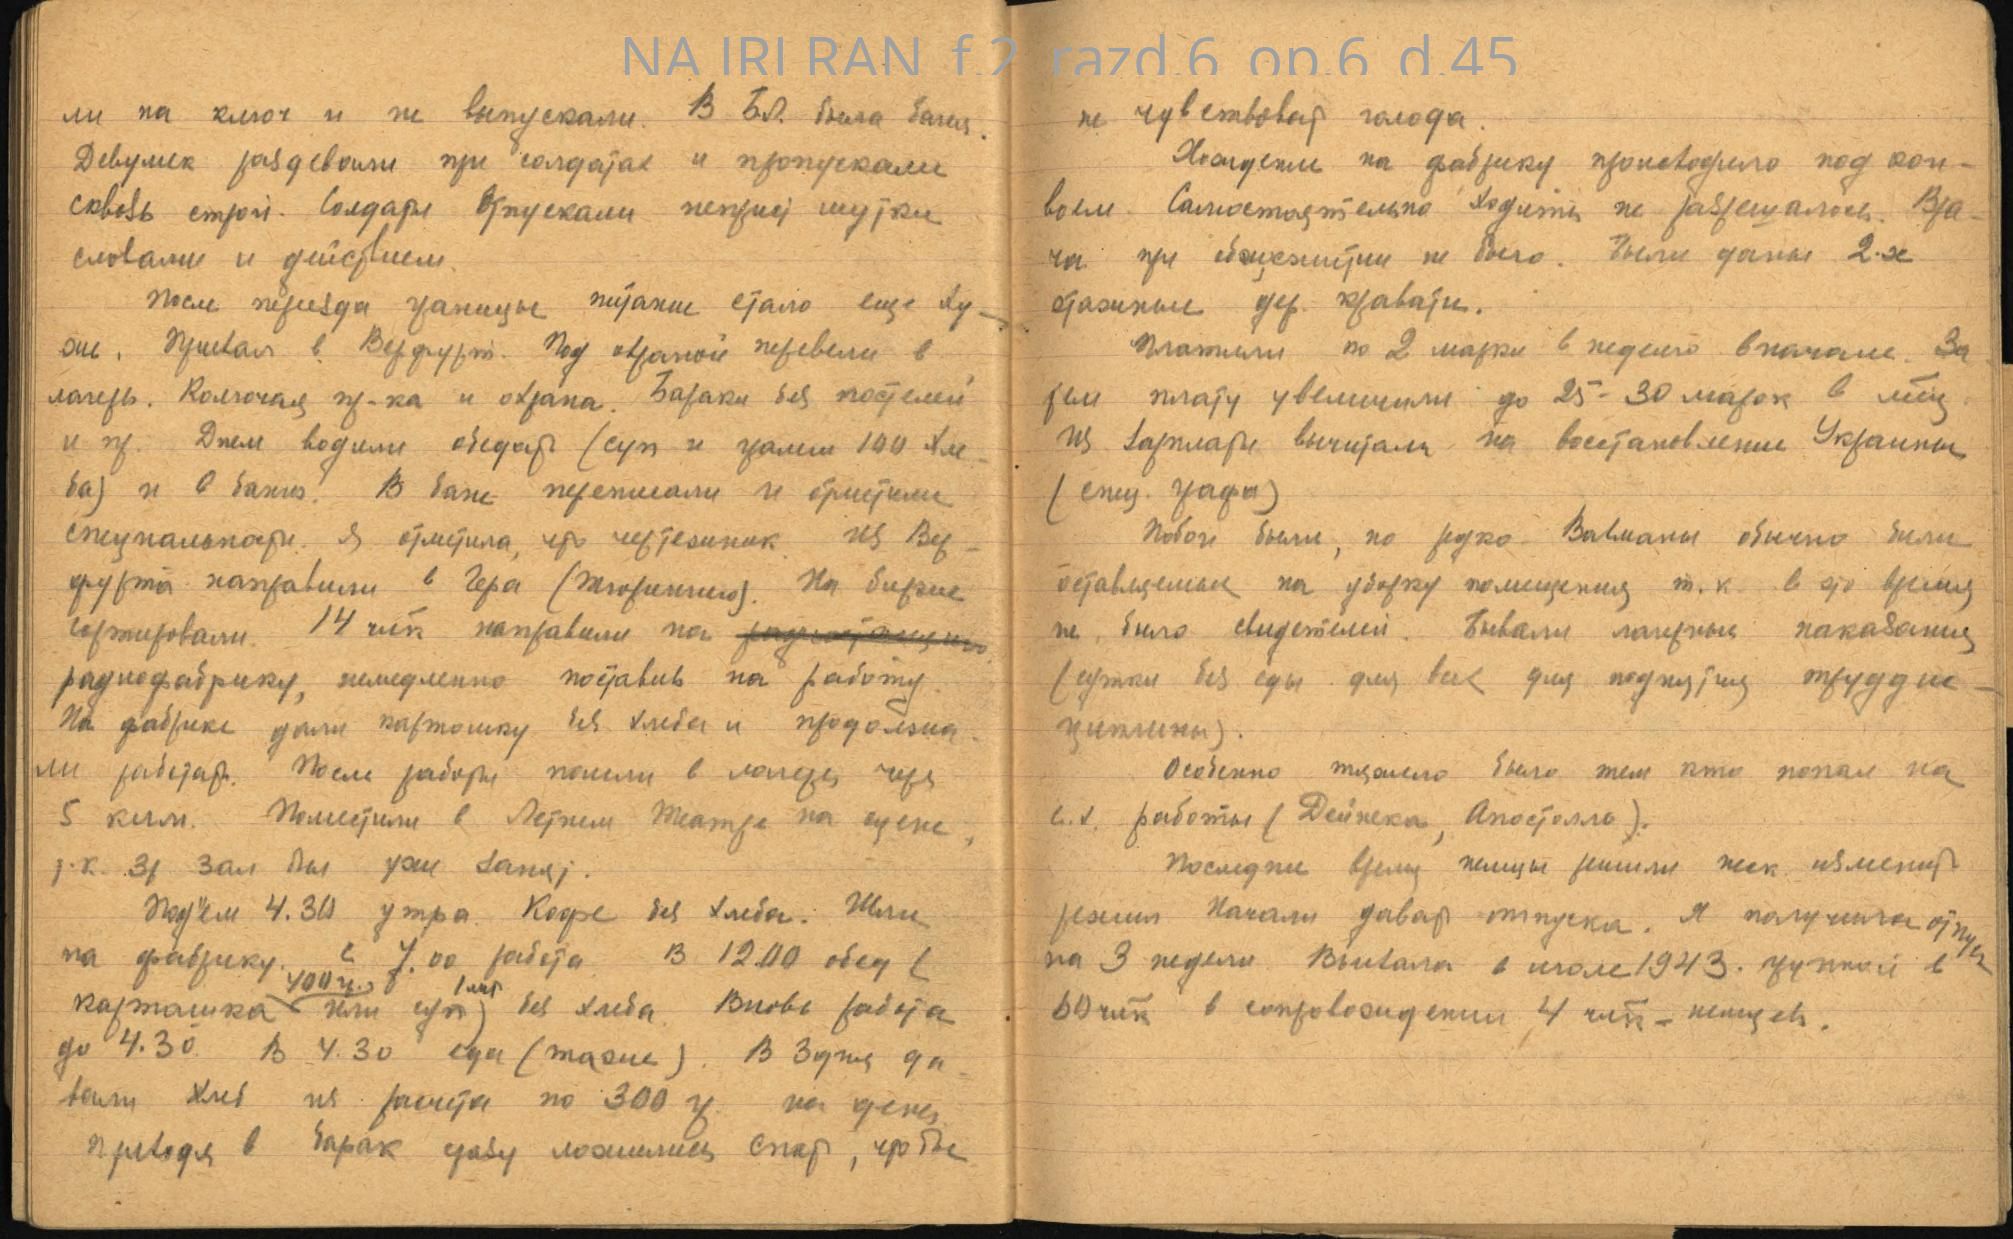 NA IRI RAN f.2 razd.6 op.6 d.45
ли на ключ и не выпускали. В Б.Л. была баня.
Девушек раздевали при солдатах и пропускали
сквозь строй. Солдаты отпускали неприст шутки
словами и действием.
После переезда границы питание стало еще ху-
же. Приехал в Верфурт. Под охраной перевели в
лагерь. Колючая пр-ка и охрана. Бараки без постелей
и пр. Днем водили обедать (суп и грамм 100 хле-
ба) и в баню. В бане переписали и отметили
специальности. Я отметила, что чертежник. Из Вер-
фурта направили в Гера (Тюрингию). На бирже
сортировали. 14 члк направили на радиостанцию
радиофабрику, немедленно поставив на работу.
На фабрике дали картошку без хлеба и продолжа-
ли работать. После работы пошли в лагерь через
5 килм. Поместили в Летнем Театре на сцене,
т.к. зр зал был уже занят.
Под"ем 4.30 утра. Кофе без хлеба. Шли
на фабрику. С 7.00 работа. В 12.00 обед (
картошка 400 гр. или суп 1 лит) без хлеба. Вновь работа
до 4.30. В 4.30 еда (та же). В 3 дня да-
вали хлеб из расчета по 300 гр. на день
Приходя в барак сразу ложились спать, чтобы
не чувствовать голода.
Хождение на фабрику происходило под кон-
воем. Самостоятельно ходить не разрешалось. Вра-
ча при общежитии не было. Были даны 2-х
этажные дер. кровати.
Платили по 2 марки в неделю вначале. За-
тем плату увеличили до 25-30 марок в м-ц.
Из зарплаты вычитали на восстановление Украины
(спец. графа)
Побои были, но редко. Вахманы обычно били
оставляемых на уборку помещения т.к. в это время
не было свидетелей. Бывали лагерные наказания
(сутки без еды для всех для поднятия труддис-
циплины).
Особенно тяжело было тем кто попал на
с.х. работы (Дейнека, Апостолло).
Последнее время немцы решили неск изменить
режим Начали давать отпуска. Я получила отпуск
на 3 недели Выехала в июле 1943. группой в
60 члк в сопровождении 4 члк - немцев.